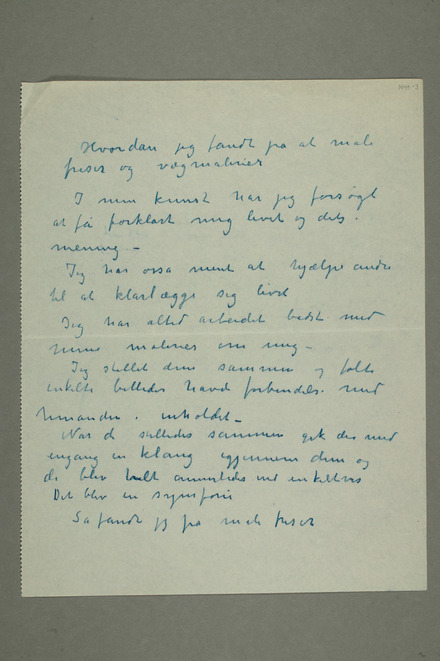 Hvordan jeg fandt på at male
friser og vægmalerier
I min kunst har jeg forsøgt
at få forklart mig livet og dets
mening –
Jeg har ossa ment at hjælpe andre
til at klarlægge sig livet
Jeg har altid arbeidet bedst med
mine malerier om mig –
Jeg stillet dem sammen og følte
enkelte billeder havde forbindelse med
hinanden i inholdet –
Når de stilledes sammen gik der med
engang en klang igjennem dem og
de blev helt annerledes end enkeltvis
Det blev en symfoni
Så fandt jeg på male friser